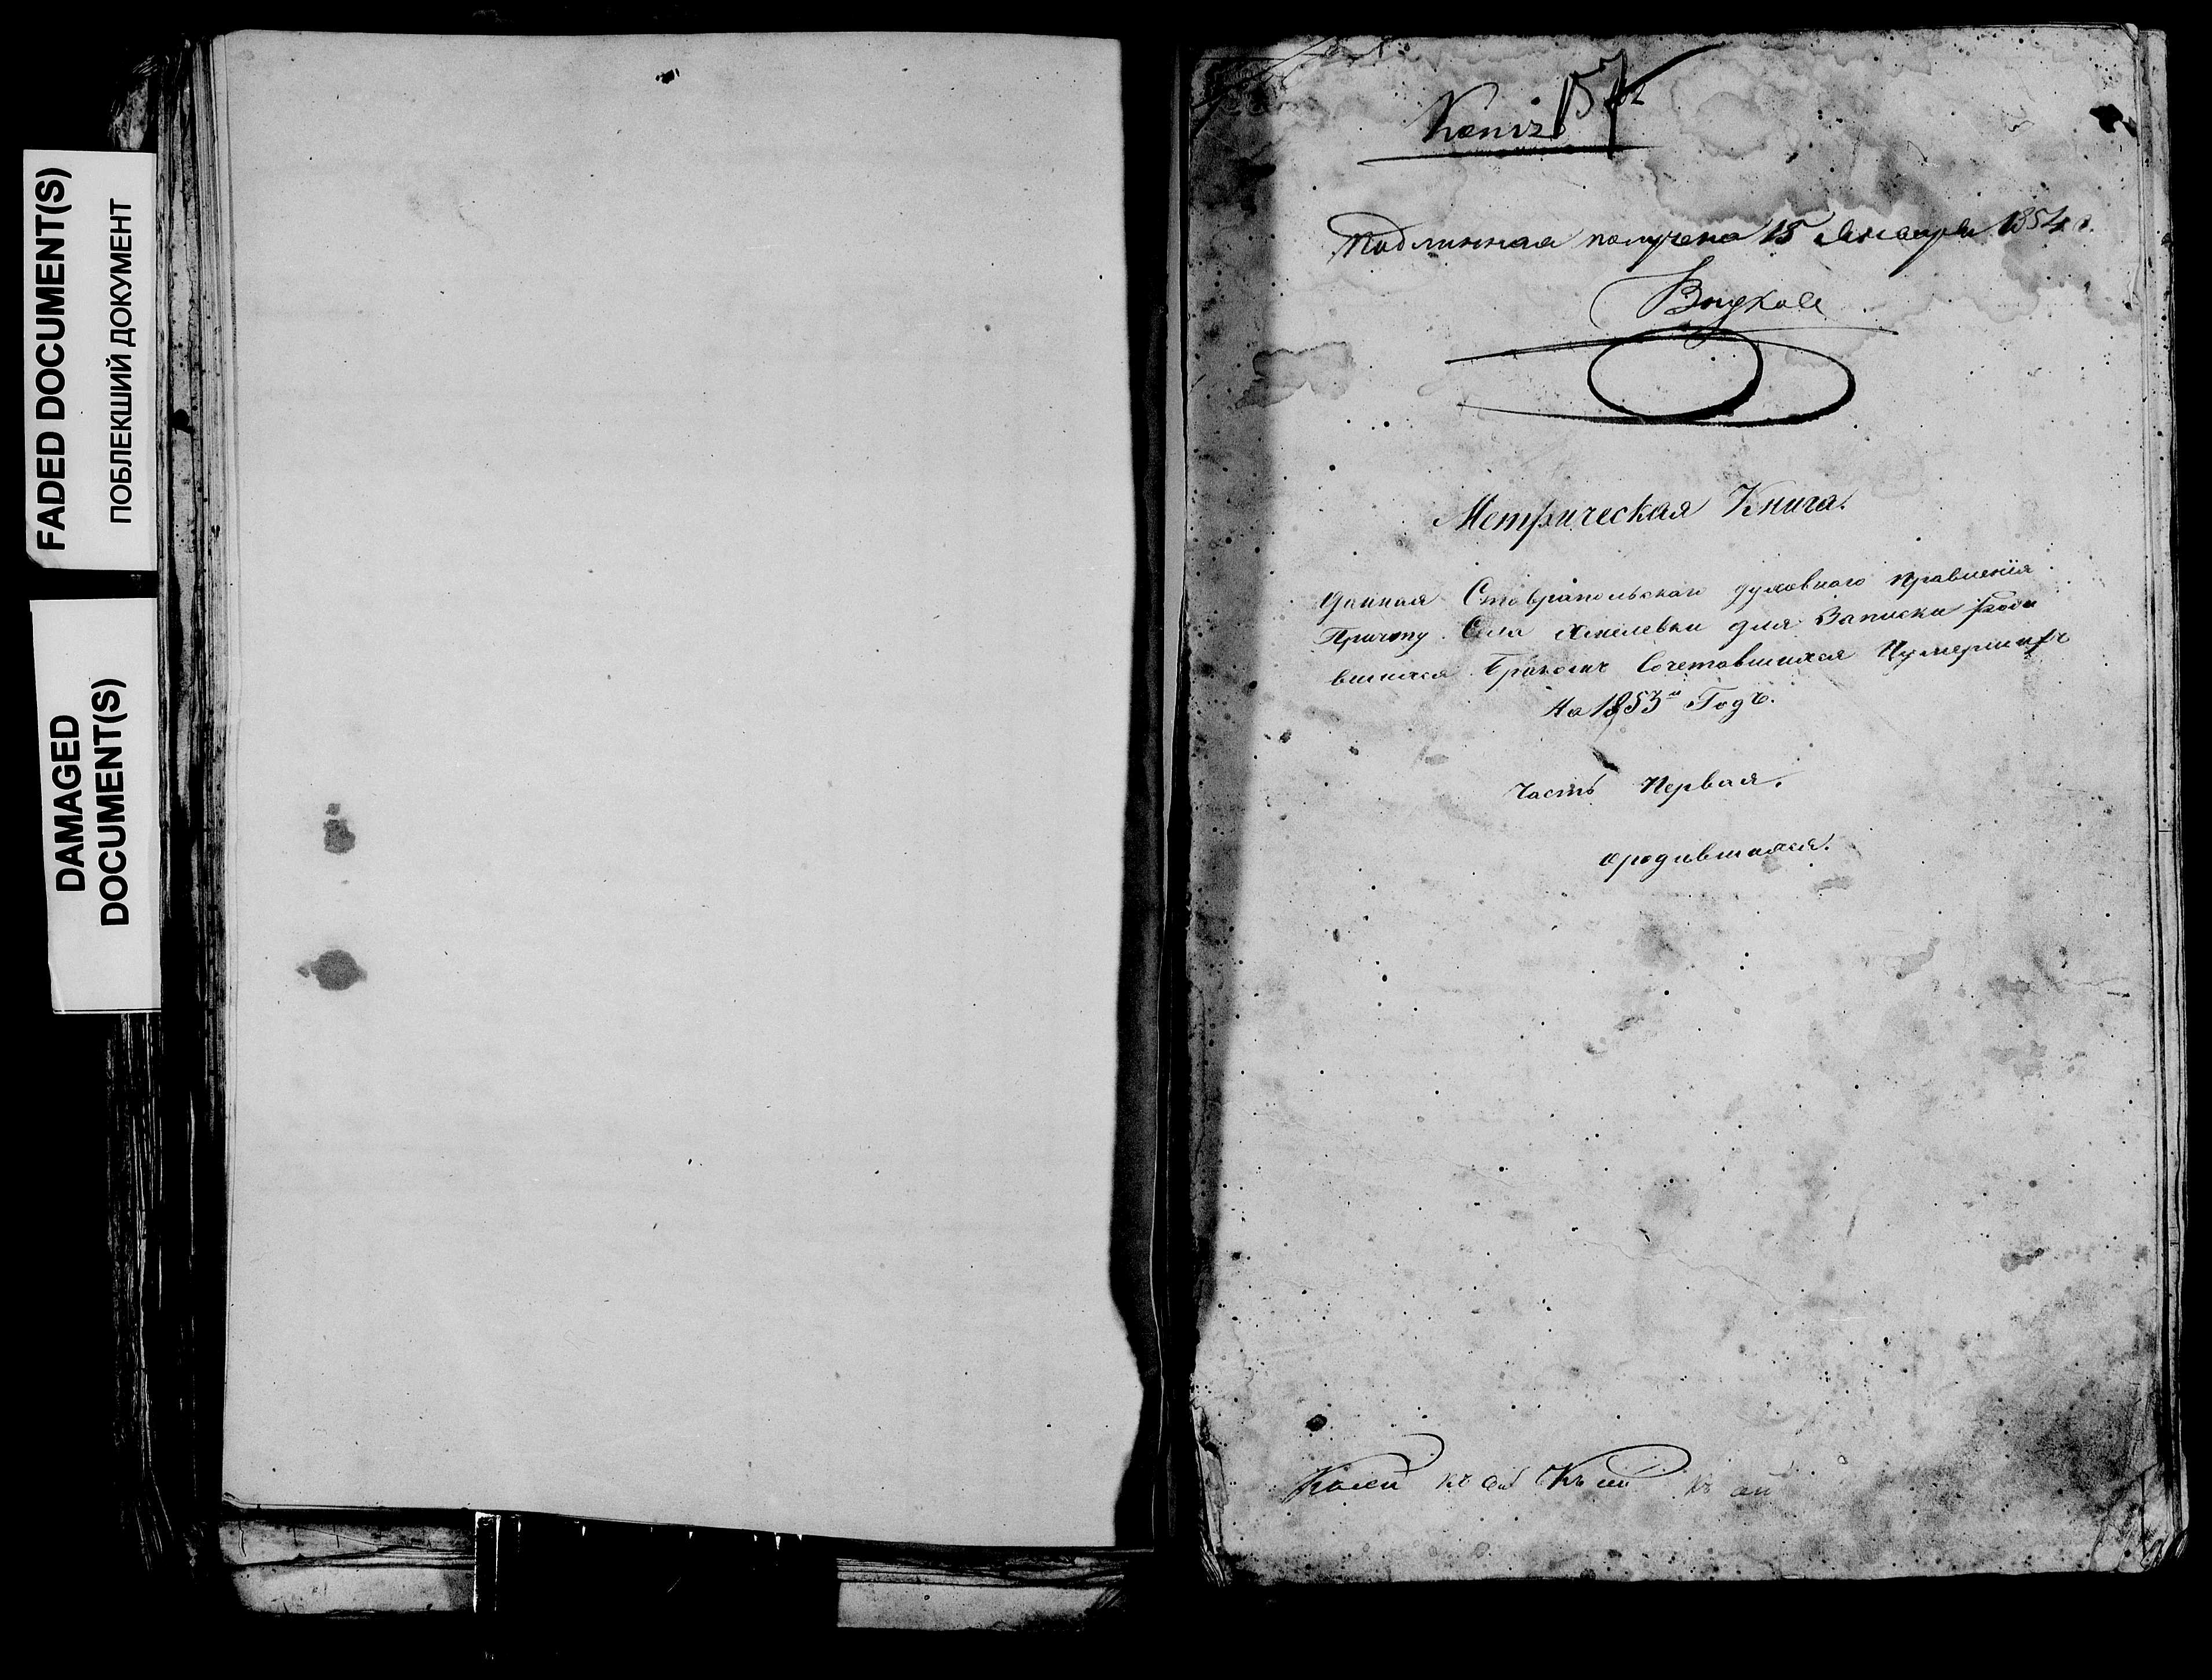 FADED DOCUMENT(S)
ПОБЛЕКШИЙ ДОКУМЕНТ
DAMAGED
DOCUMENT(S)
157
Подлинная получена 15 Января 1854 г.
Метрическая Книга.
Данная Ставропольскаго духовнаго правленія
Причту Села Хмелевки для Записки роди
вшихся Бракомъ Сочетавшихся Иумершихъ
На 1853й Годъ.
Часть Первая.
ородившихся.